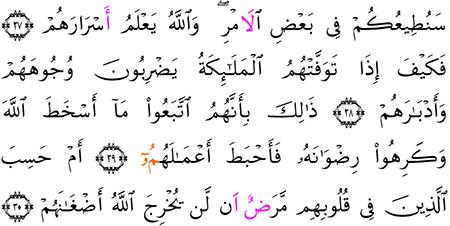 سَنُطِيعُكُمْ فِى بَعْضِ اِ۬لَامْرِۖ وَاللَّهُ يَعْلَمُ أَسْرَارَهُمْ ٢٧
فَكَيْفَ إِذَا تَوَفَّتْهُمُ الْمَلَٰٓئِكَةُ يَضْرِبُونَ وُجُوهَهُمْ
وَأَدْبَٰرَهُمْ ٢٨ ذَٰلِكَ بِأَنَّهُمُ اتَّبَعُواْ مَآ أَسْخَطَ اللَّهَ
وَكَرِهُواْ رِضْوَٰنَهُۥ فَأَحْبَطَ أَعْمَٰلَهُمُۥٓ ٢٩ أَمْ حَسِبَ
الَّذِينَ فِى قُلُوبِهِم مَّرَضٌ اَن لَّن يُخْرِجَ اللَّهُ أَضْغَٰنَهُمْ ٣٠